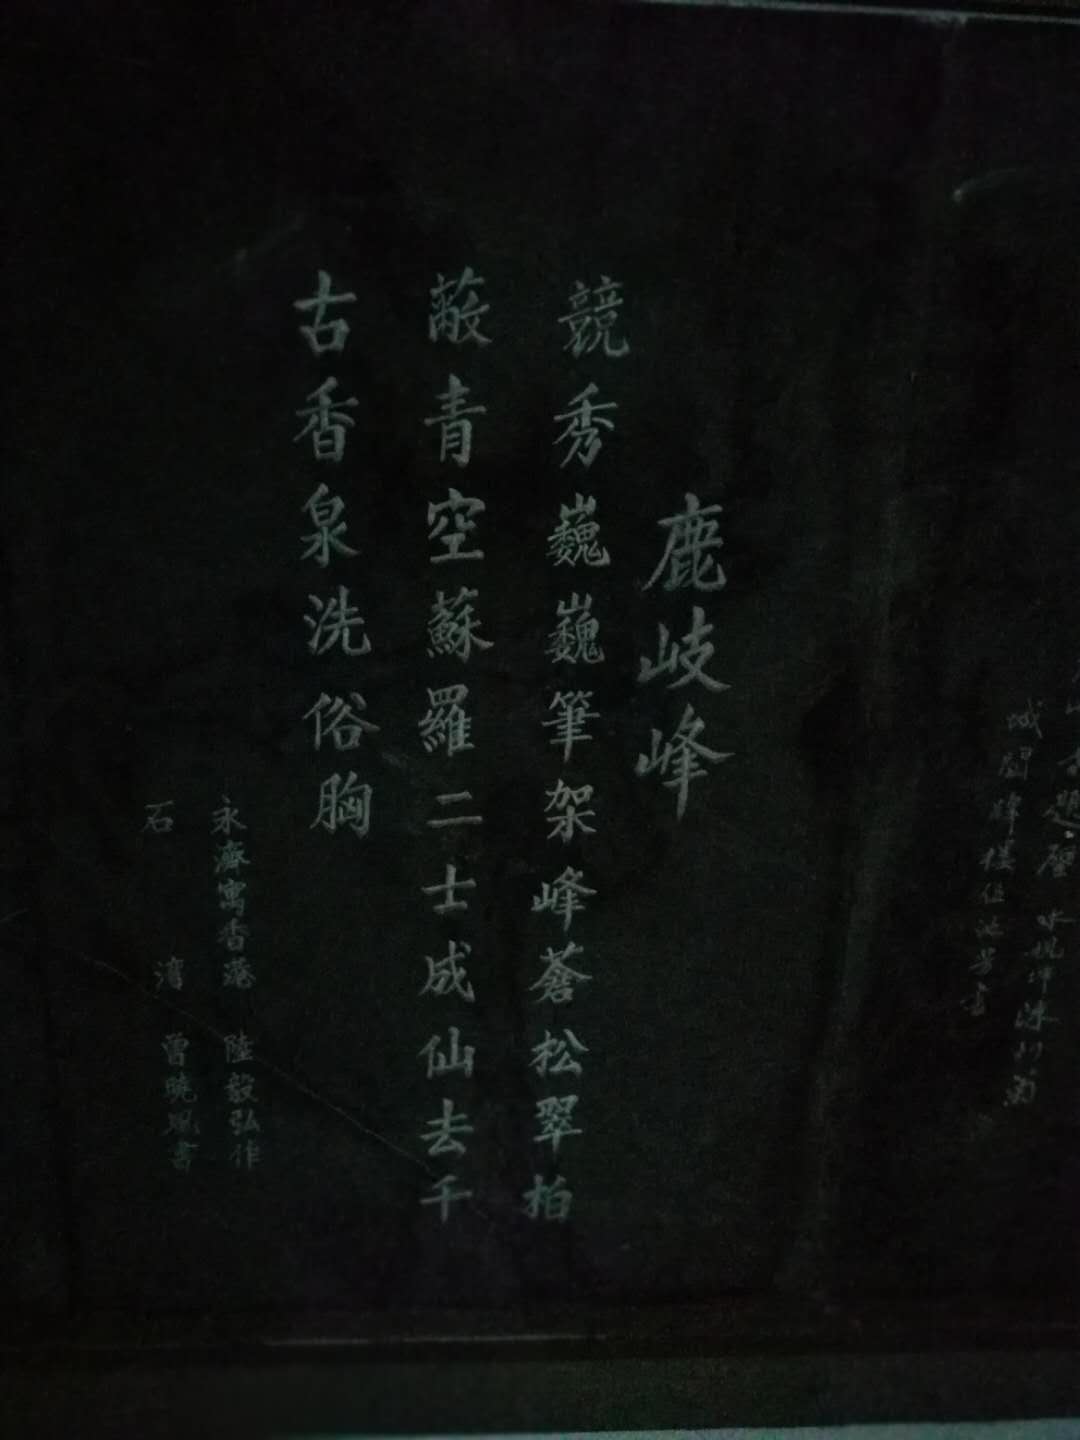 鹿岐峰
競秀巍巍筆架峰蒼松翠柏
蔽青空蘇羅二士成仙去千
古香泉洗俗胸
永濟寓香港 陸毅弘作
石灣 曾曉風書